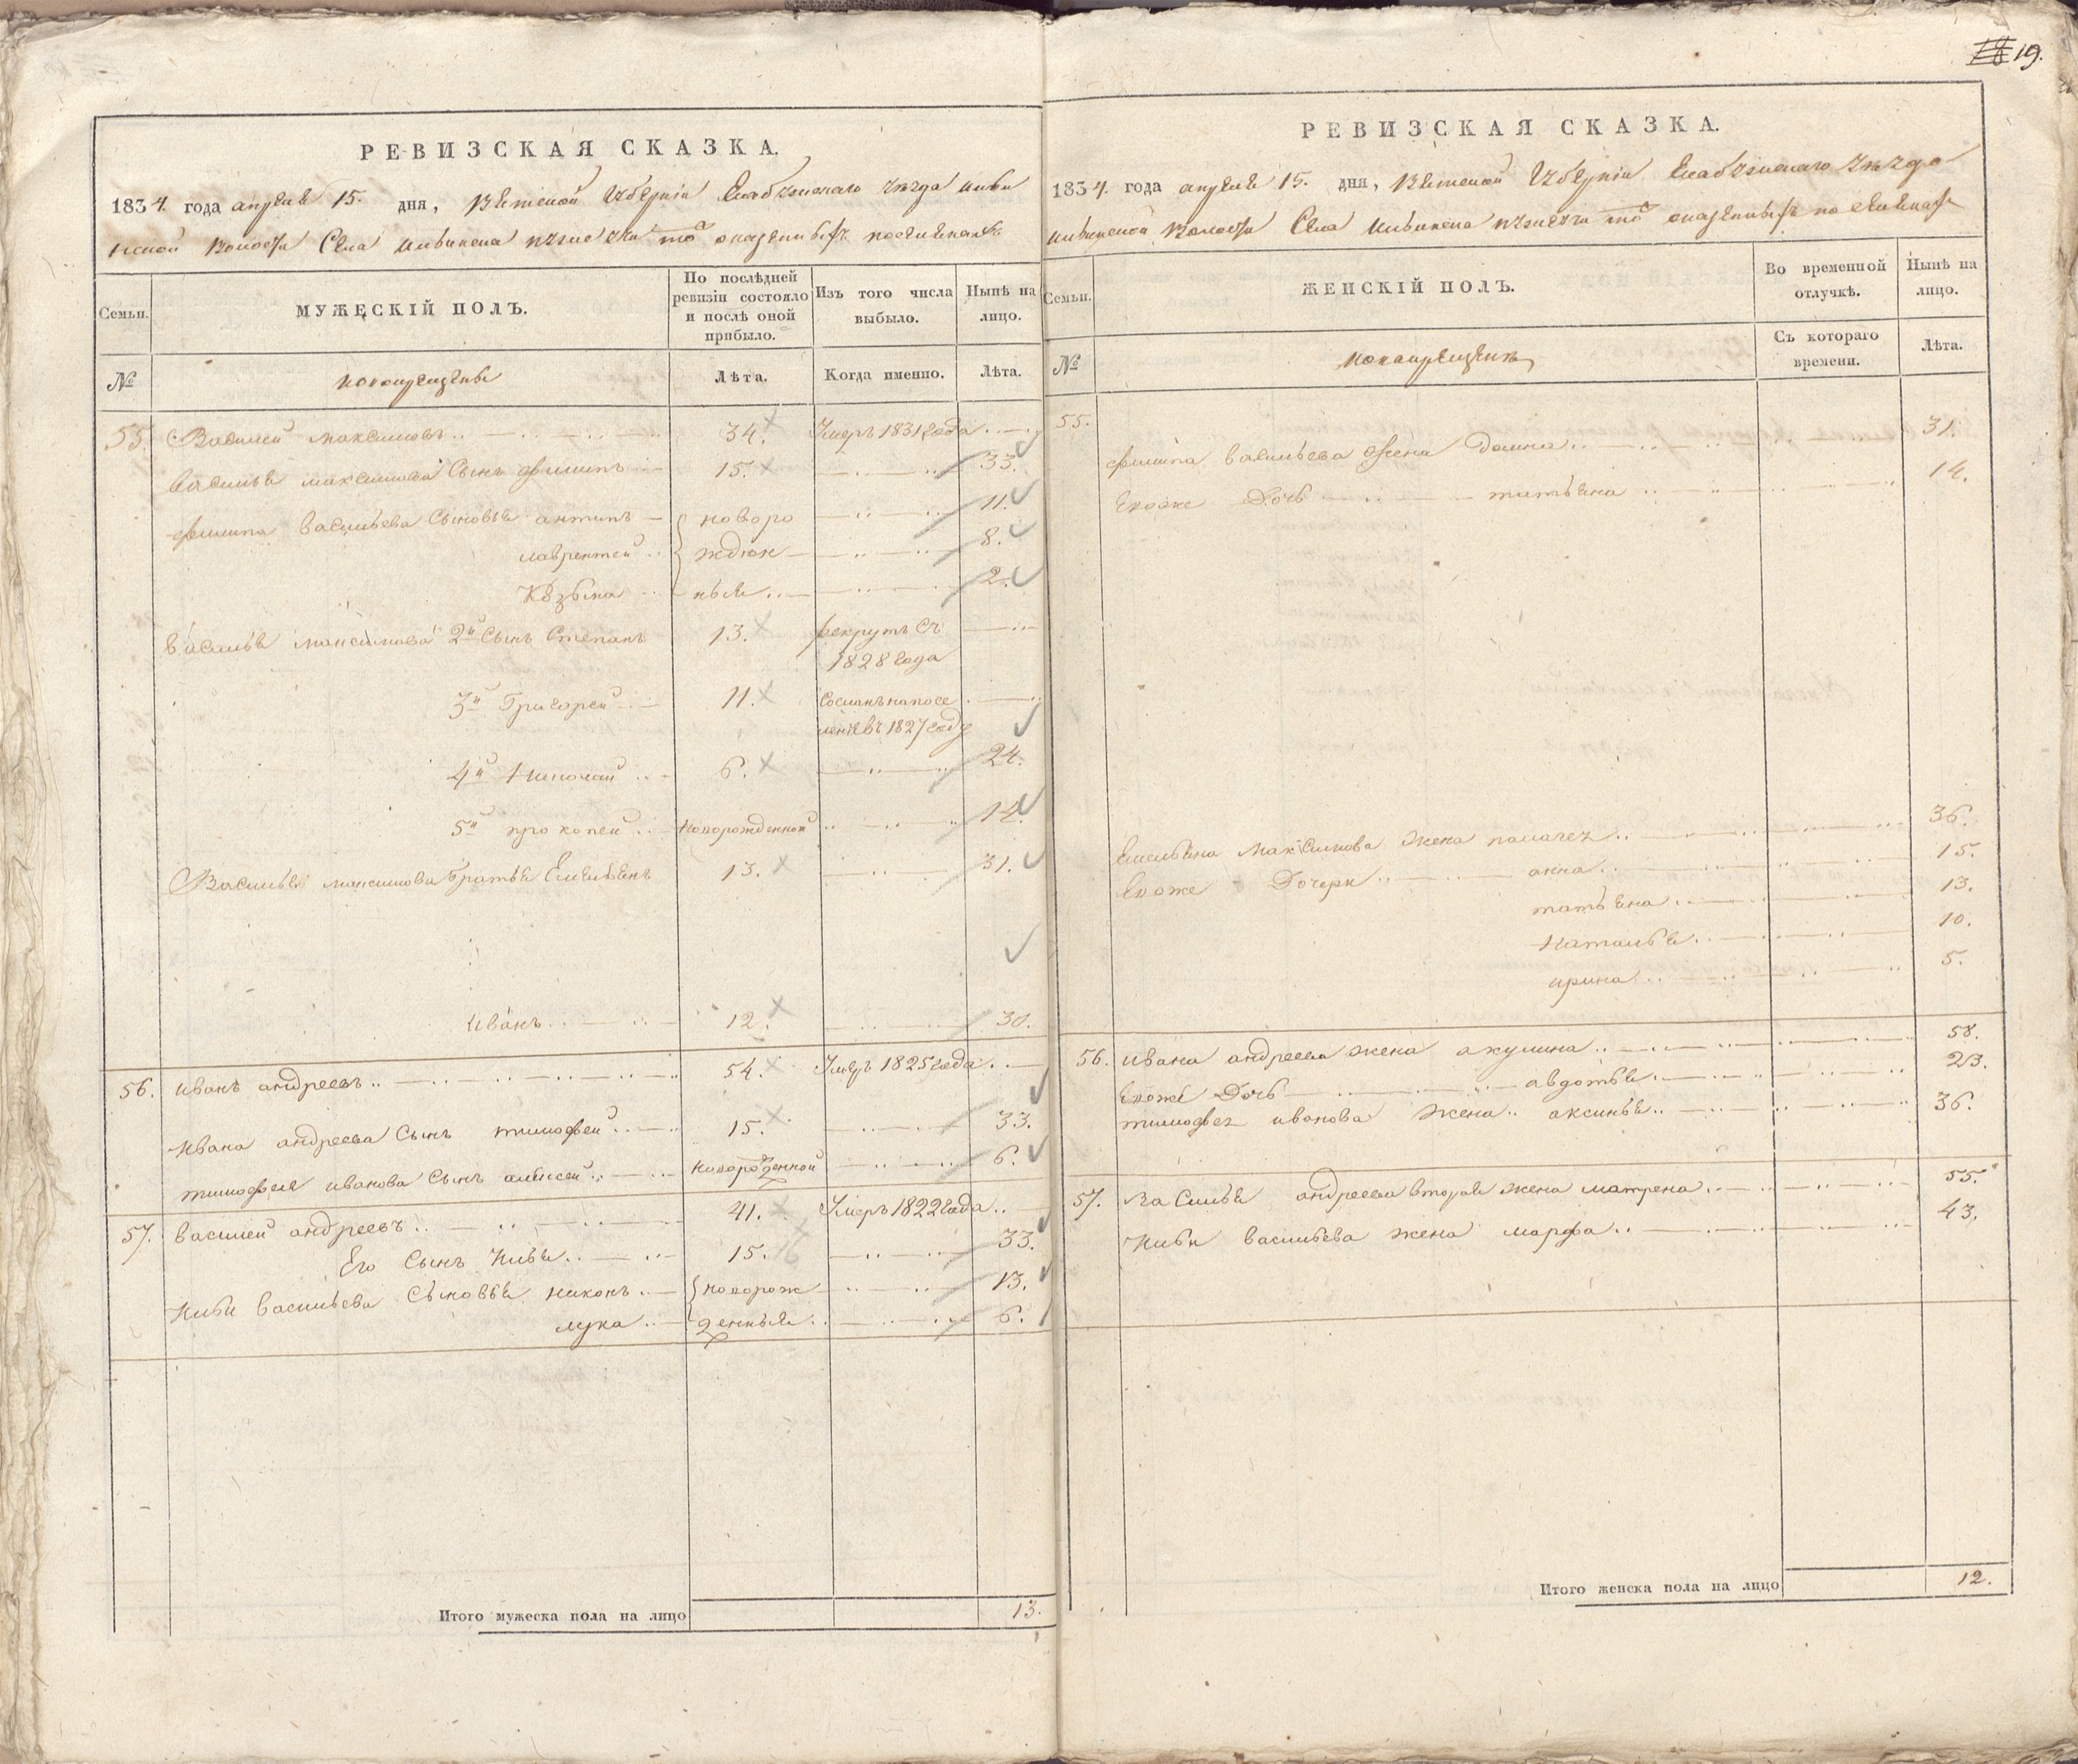 19.
РЕВИЗСКАЯ СКАЗКА.
1834. года апреля 15. дня, Вятской Губернiи Елабужскаго уезда
волости Села
Семьи.
МУЖЕСКIЙ ПОЛЪ.
По послѣдней ревизiи состояло и послѣ оной прибыло.
Изъ того числа выбыло.
Нынѣ на лицо.
№
новокрещены
Лѣта.
Когда именно.
Лѣта.
55. Василей максимовъ 34. Умеръ 1831 года
Василья максимова Сынъ филипъ 15. 33.
филипа васильева Сыновья антипъ новоро 11.
лаврентей жден 8.
Козьма ныя 2.
Василья максимова 2й Сынъ Степанъ 13. рекрутъ съ
1828 года
3й Григорей 11. Сосланъ на посе
ленiе въ 1827 году
4й Николай 6. 24.
5й прокопей новорожденной 14.
Василья максимова братья Емельянъ 13. 31.
Иванъ 12. 30.
56. иванъ андреевъ 54. Умеръ 1825 года
Ивана андреева Сынъ тимофей 15. 33.
тимофея иванова Сынъ алексей новорожденной 6.
57. василей андреевъ 41. Умеръ 1822 года
Его Сынъ 15. 33.
васильева Сыновья никонъ новорож 13.
лука денныя 6.
Итого мужеска пола на лицо 13.
РЕВИЗСКАЯ СКАЗКА.
1834. года апреля 15. дня, Вятской Губернiи Елабужскаго уезда
волости Села
Семьи.
ЖЕНСКIЙ ПОЛЪ.
Во временной отлучкѣ.
Нынѣ на лицо.
№
Съ котораго времени.
Лѣта.
55.
филипа васильева жена Домна 31.
Евоже Дочь татьяна 14.
Емельяна Максимова жена 36.
Евоже Дочери анна 15.
татьяна 13.
Наталья 10.
ирина 5.
56. ивана андреева жена акулина 58.
Евоже Дочь авдотья 23.
тимофея иванова жена аксинья 36.
57. Василья андреева вторая жена матрена 55.
васильева жена марфа 43.
Итого женска пола на лицо 12.